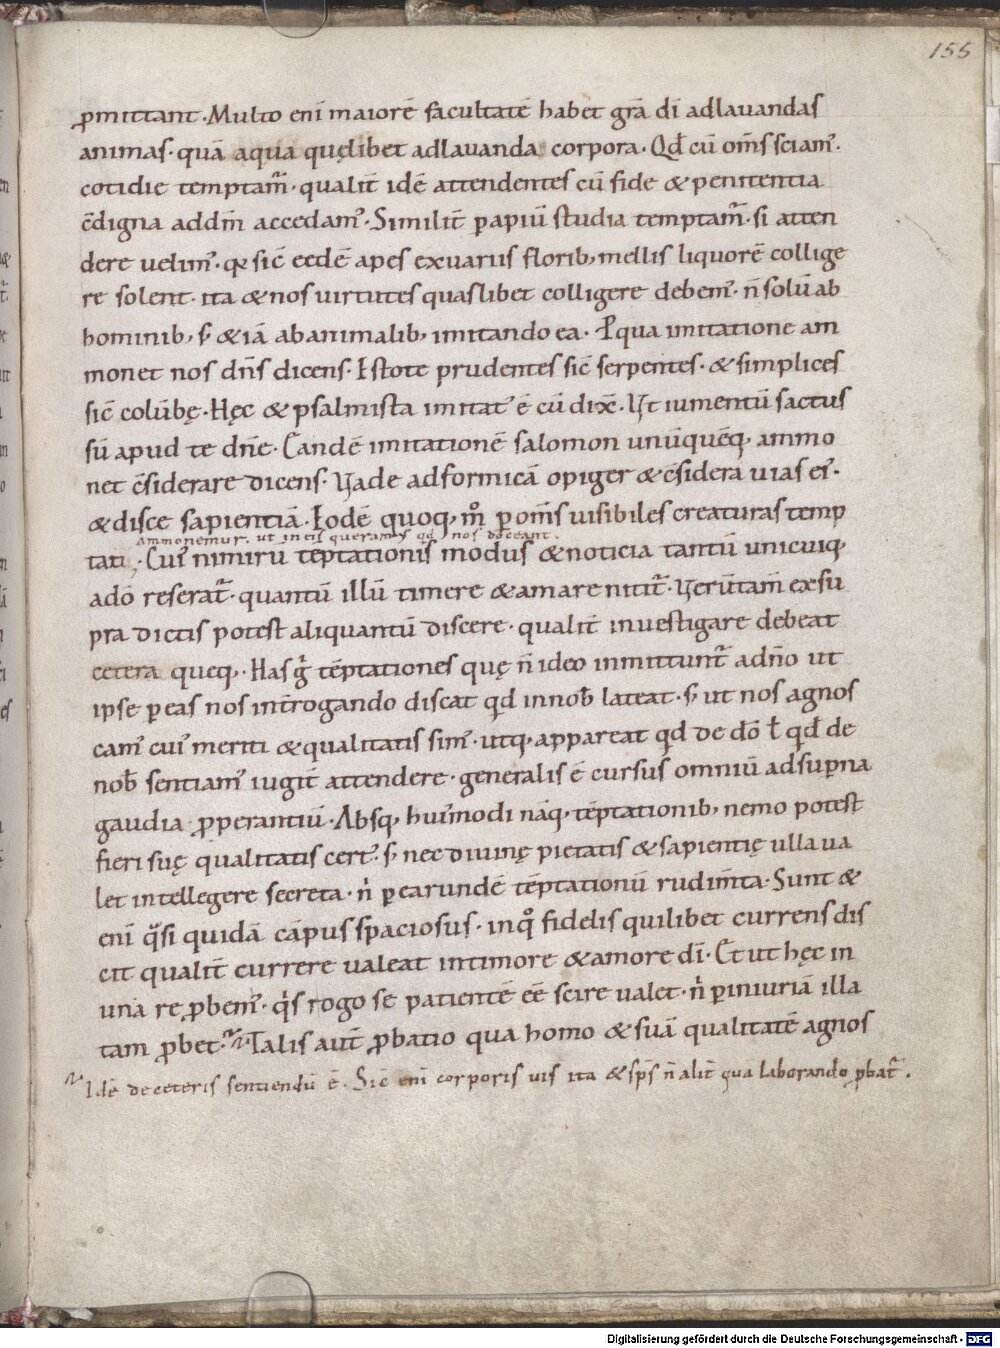 155
ꝓmittant. Multo eni̅ maiore̅ facultate̅ habet gr̅a di̅ adlauandas
animas. qua̅ aqua quęlibet adlauanda corpora. Qd̅ cu̅ om̅s sciam᾽.
cotidie temptam᷑. qualit̅ ide̅ attendentes cu̅ fide & penitentia
c̅digna addm̅ accedam᾽. Similit̅ ꝑ apiu̅ studia temptam᷑. si atten
dere uelim᾽. qꝛ sic̅ eęde̅ apes exuariis florib; mellis liquore̅ collige
re solent. ita & nos uirtutes quaslibet colligere debem᾽. n̅ solu̅ ab
hominib; s; & ia̅ ab animalib; imitando ea. P̱ qua imitatione am
monet nos dn̅s dicens. Estote prudentes sic̅ serpentes. & simplices
sic̅ colu̅bę. Hęc & psalmista imitat᾽ e̅ cu̅ dix̅. Vt iumentu̅ factus
su̅ apud te dn̅e. Eande̅ imitatione̅ salomon unu̅que̅q; ammo
net c̅siderare dicens. Vade ad formica̅ o piger & c̅sidera uias ei᾽.
& disce sapientia̅. Eode̅ quoq; mͦ ꝑ om̅s uisibiles creaturas temp
ammonemur. ut in eis queramus qd̅ nos doceant.
tati;. Cui᾽ nimiru̅ te̅ptationis modus & noticia tantu̅ unicuiq;
a do̅ reserat᷑. quantu̅ illu̅ timere & amare nitit᷑. Veru̅tam̅ ex su
pra dictis potest aliquantu̅ discere. qualit̅ inuestigare debeat
cetera queq;. Has g᷑ te̅ptationes quę n̅ ideo inmittunt᷑ a dn̅o ut
ipse ꝑ eas nos int̅rogando discat qd̅ in nob̅ lateat. s; ut nos agnos
cam᾽ cui᾽ meriti & qualitatis sim᾽. utq; appareat qd̅ de do̅ ł qd̅ de
nob̅ sentiam᾽ iugit̅ attendere. generalis e̅ cursus omniu̅ ad suꝑna
gaudia ꝓꝑantiu̅. Absq; hui᾽modi na̅q; te̅ptationib; nemo potest
fieri suę qualitatis cert᾽. s; nec diuinę pietatis & sapientię ulla ua
let intellegere secreta. n̍ ꝑ earunde̅ te̅ptationu̅ rudim̅ta. Sunt &
eni̅ q̾si quida̅ ca̅pus spaciosus. in qͦ fidelis quilibet currens dis
cit qualit̅ currere ualeat in timore & amore di̅. Et ut hęc in
una re ꝓbem᾽. q̍s rogo se patiente̅ ee̅ scire ualet. n̍ ꝑ iniuria̅ illa
tam ꝓbet᷑. Talis aut̅ ꝓbatio qua homo & sua̅ qualitate̅ agnos
Ide̅ de ceteris sentiendu̅ e̅. Sic̅ eni̅ corporis uis ita & sp̅s n̅ alit̅ qua̅ laborando ꝓbat᷑.
Digitalisierung gefördert durch die Deutsche Forschungsgemeinschaft - DFG